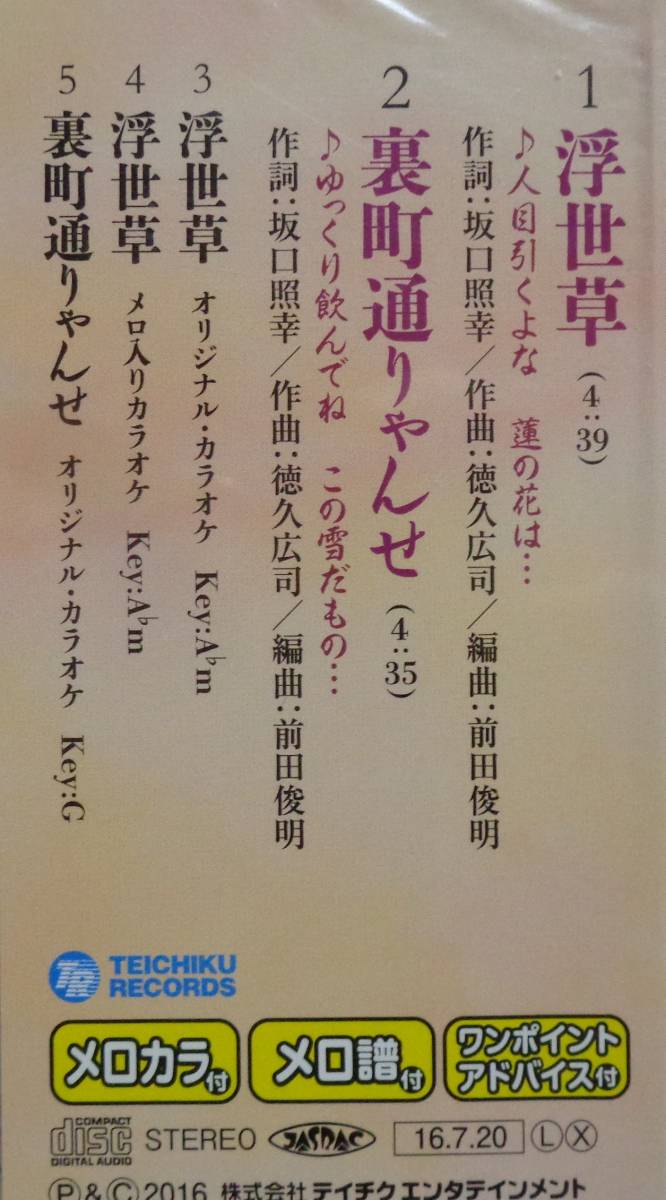 1 浮世草 (4:39)
♪人目引くよな 蓮の花は…
作詞:坂口照幸/作曲:徳久広司/編曲:前田俊明
2 裏町通りゃんせ (4:35)
♪ゆっくり飲んでね この雪だもの…
作詞:坂口照幸/作曲:徳久広司/編曲:前田俊明
3 浮世草 オリジナル・カラオケ Key:A♭m
4 浮世草 メロ入りカラオケ Key:A♭m
5 裏町通りゃんせ オリジナル・カラオケ Key:G
TR TEICHIKU
RECORDS
メロカラ付
メロ譜付
ワンポイント
アドバイス付
COMPACT
disc
DIGITAL AUDIO
STEREO JASRAC 16.7.20 Ⓛ Ⓧ
Ⓟ&Ⓒ2016 株式会社テイチクエンタテインメント